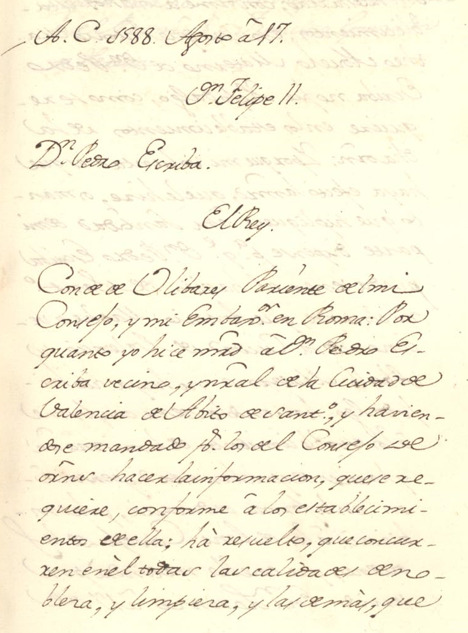 A. C. 1588. Agosto â 17.
Dn. Felipe II.
Dn. Pedro Escriba.
El Rey.
Conde de Olibares Pariente del mi
Consejo, y mi Embaxor. en Roma: Por
quanto yo hice mrd â Dn. Pedro Es-
criba vecino, y nral de la Ciudad de
Valencia de Abito de Santo., y havien-
dose mandado pr. los del Consejo de
orñs hacer la informacion, que se re-
quiere, conforme â los establecimi-
ento de ella; hà resuelto, que concur-
ren en èl todas las calidades de no-
blera, y limpiera, y las demàs, que